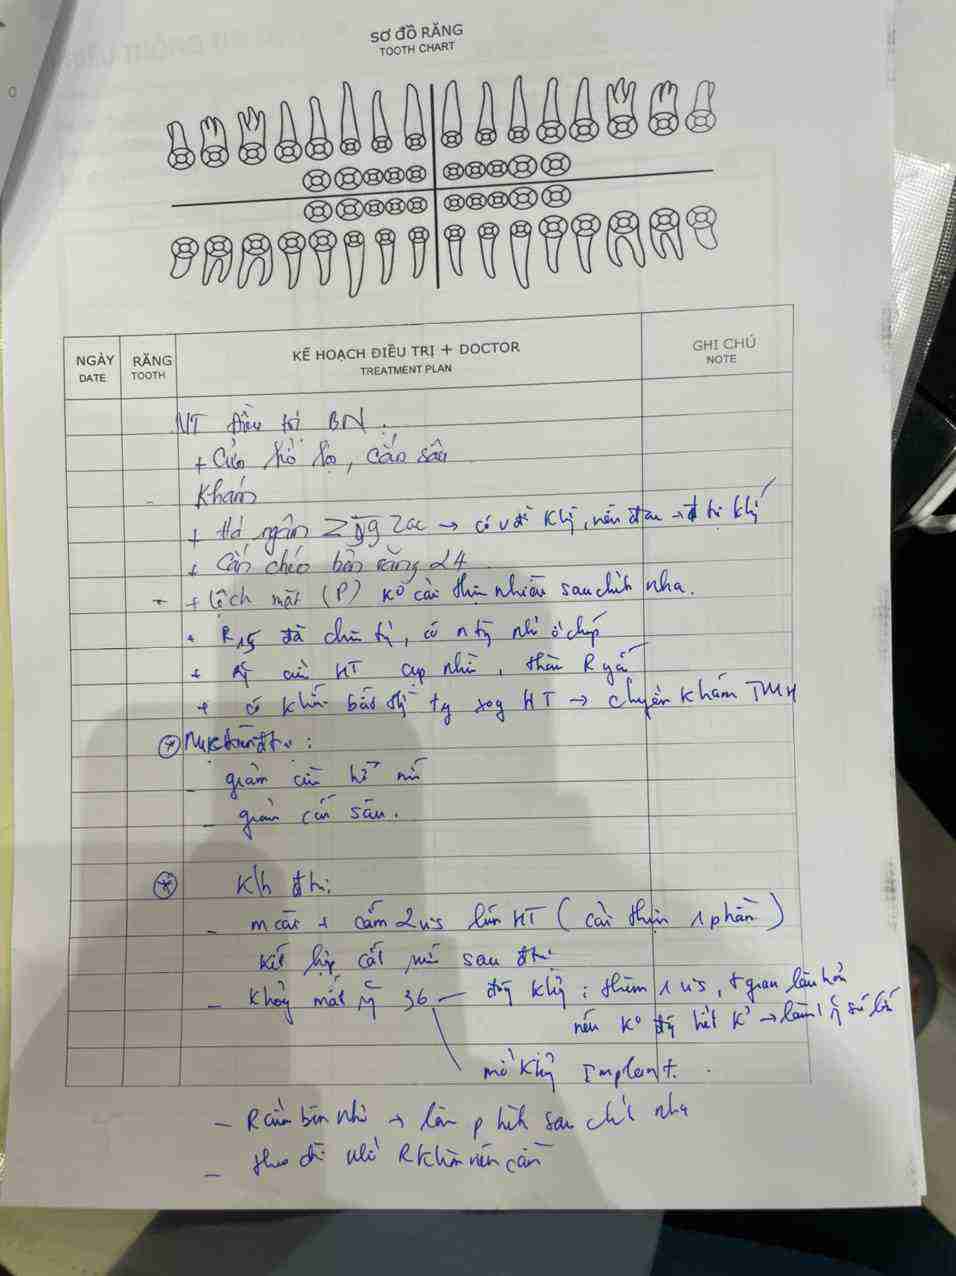 SƠ ĐỒ RĂNG
TOOTH CHART
NGÀY
DATE
RĂNG
TOOTH
KẾ HOẠCH ĐIỀU TRỊ + DOCTOR
TREATMENT PLAN
GHI CHÚ
NOTE
NT điều trị BN.
+ Cười hở lợi, cắn sâu
Khám
+ Há ngậm Zyg Zac → có vđề khớp, nếu đau → đtrị khớp
+ Cắn chéo bên răng 24
+ Lệch mặt (P) ko cải thiện nhiều sau chỉnh nha.
+ R15 đã chữa tủy, có ở chóp
+ HT, thân R
+ có HT → chuyển khám TMH
* Mục tiêu đtrị:
- giảm cười hở
- giảm cắn sâu.
* K/h đtrị:
- m cài + cắm 2 vis lún HT (cải thiện 1 phần)
kết hợp cắt sau đtrị
- Khoảng mất R 36 — đóng khoảng: thêm 1 vis, tgian lâu hơn
nếu ko đóng hết → làm
mở khoảng Implant.
- R cửa bên nhỏ → làm p hình sau chỉnh nha
- theo dõi nhổ R khôn nếu cần